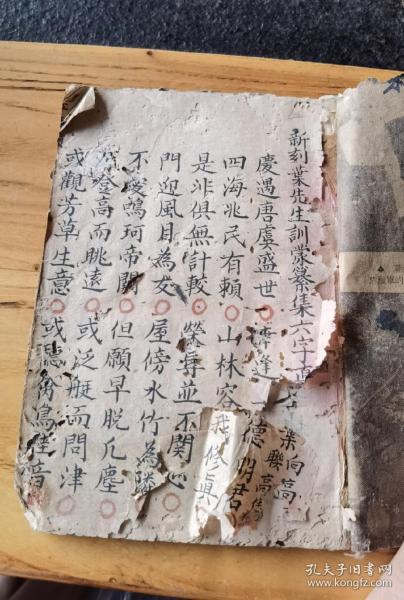 新刻葉先生訓蒙纂集六字
慶遇唐虞盛世 德明君
四海兆民有賴 山林容我修真
是非俱無計較 榮辱並不関心
門迎風月為友 屋傍水竹為隣
不 鳴珂帝闕 但願早脱凡塵
或登高而眺遠 或泛艇而問津
或觀芳草生意 或聽禽鳥佳音
向高
聯高
孔夫子旧书网
www.kongfz.com